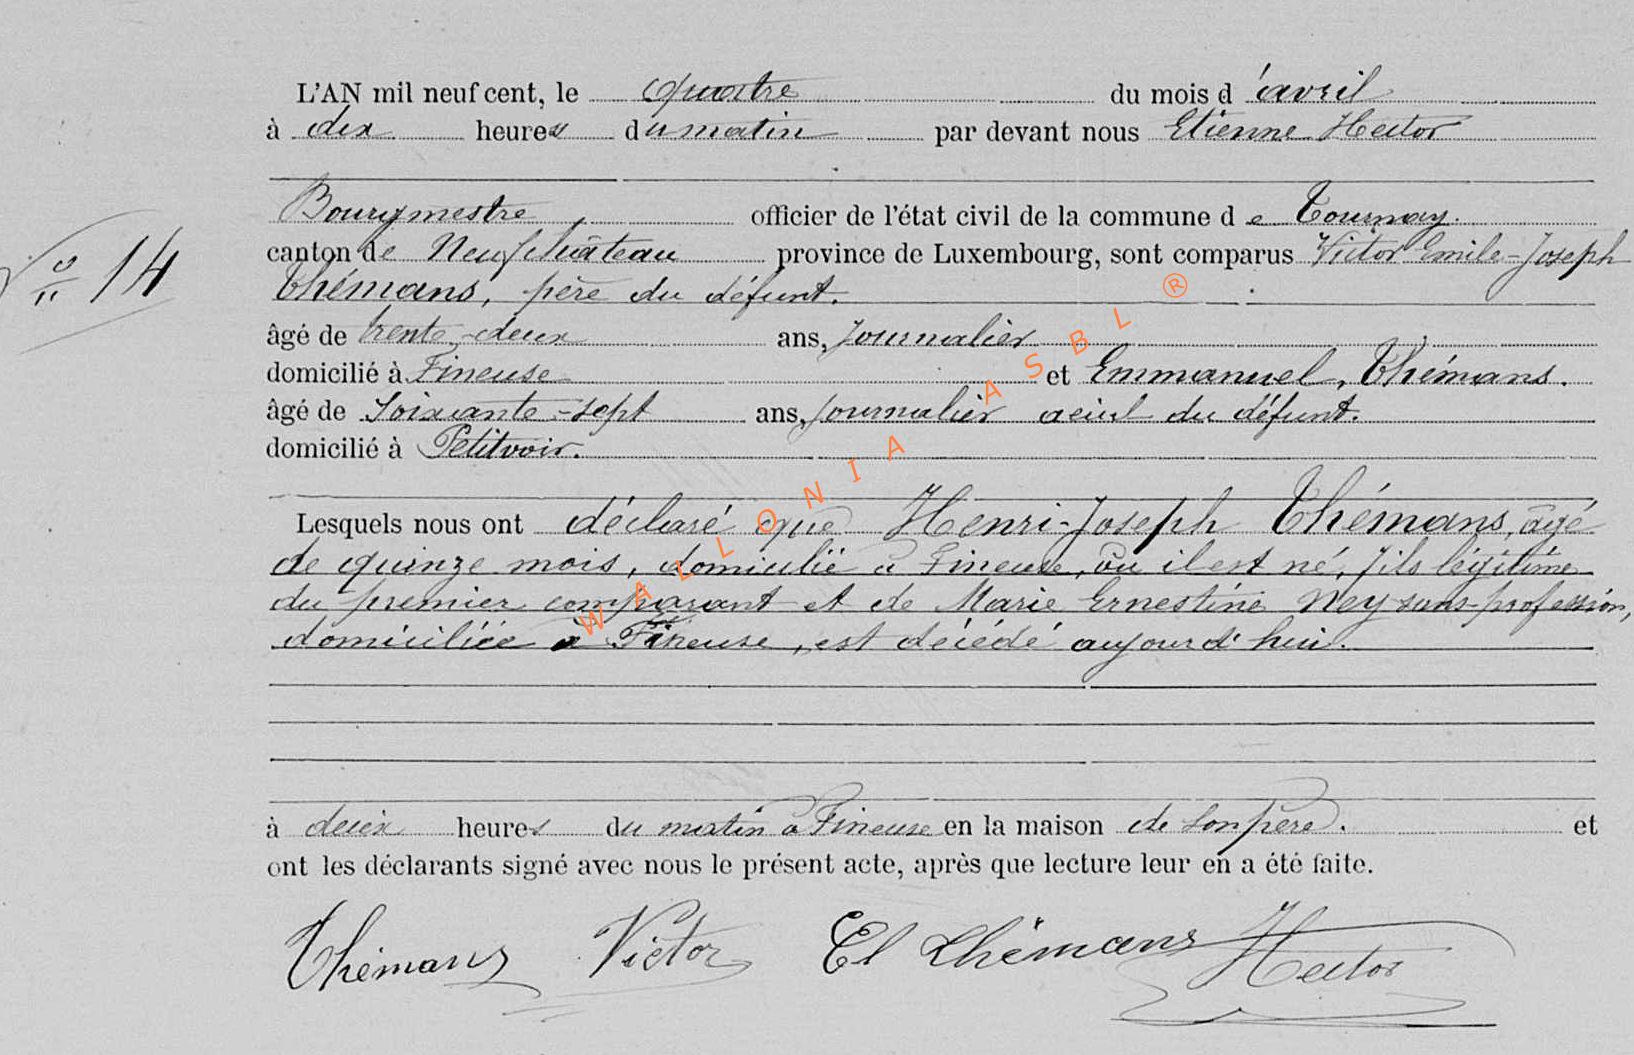 L'AN mil neuf cent, le quatre du mois d'avril
à dix heures du matin par devant nous Etienne Hector
Bourgmestre officier de l'état civil de la commune de Tournay.
N° 14
canton de Neufchâteau province de Luxembourg, sont comparus Victor Emile-Joseph
Thémans, père du défunt.
âgé de trente-deux ans, journalier
domicilié à Fineuse et Emmanuel, Thémans.
âgé de Soixante-sept ans, journalier aeiul du défunt.
domicilié à Petitvoir.
Lesquels nous ont déclaré que Henri-Joseph Thémans, âgé
de quinze mois, domicilié à Fineuse, où il est né, fils légitime
du premier comparant et de Marie Ernestine Ney sans profession,
domiciliée à Fineuse, est décédé aujourd'hui.
à deux heures du matin à Fineuse en la maison de son père. et
ont les déclarants signé avec nous le présent acte, après que lecture leur en a été faite.
Thémans Victor El Thémans Hector
WALLONIA ASBL ®